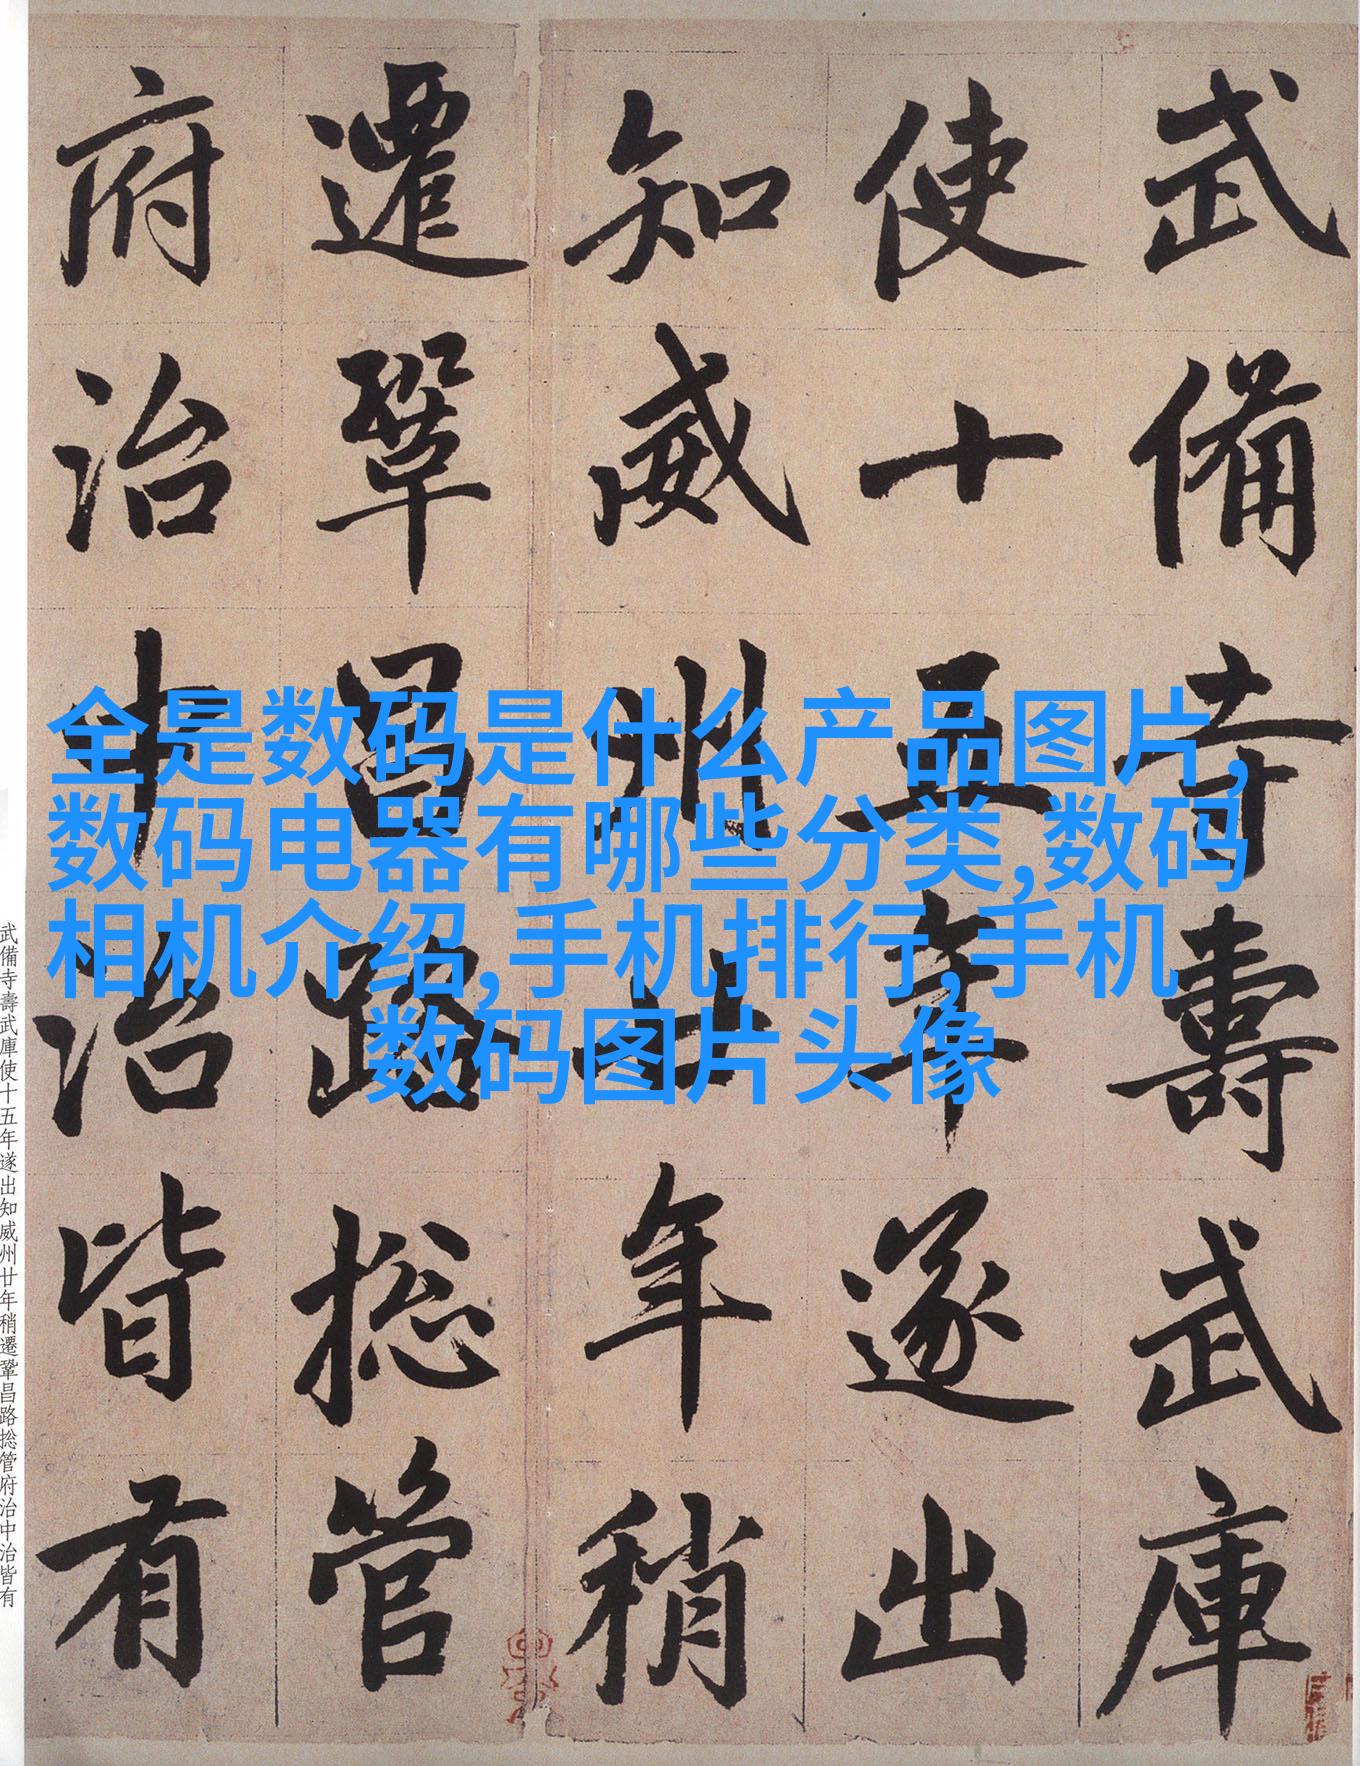 武備寺壽武庫
使十五年遂出
知威州廿年稍
遷鞏昌路捴管
府治中治皆有
全是数码是什么产品图片,
数码电器有哪些分类,数码
相机介绍,手机排行,手机
数码图片头像
武備寺壽武庫使十五年遂出知威州廿年稍遷鞏昌路捴管府治中治皆有